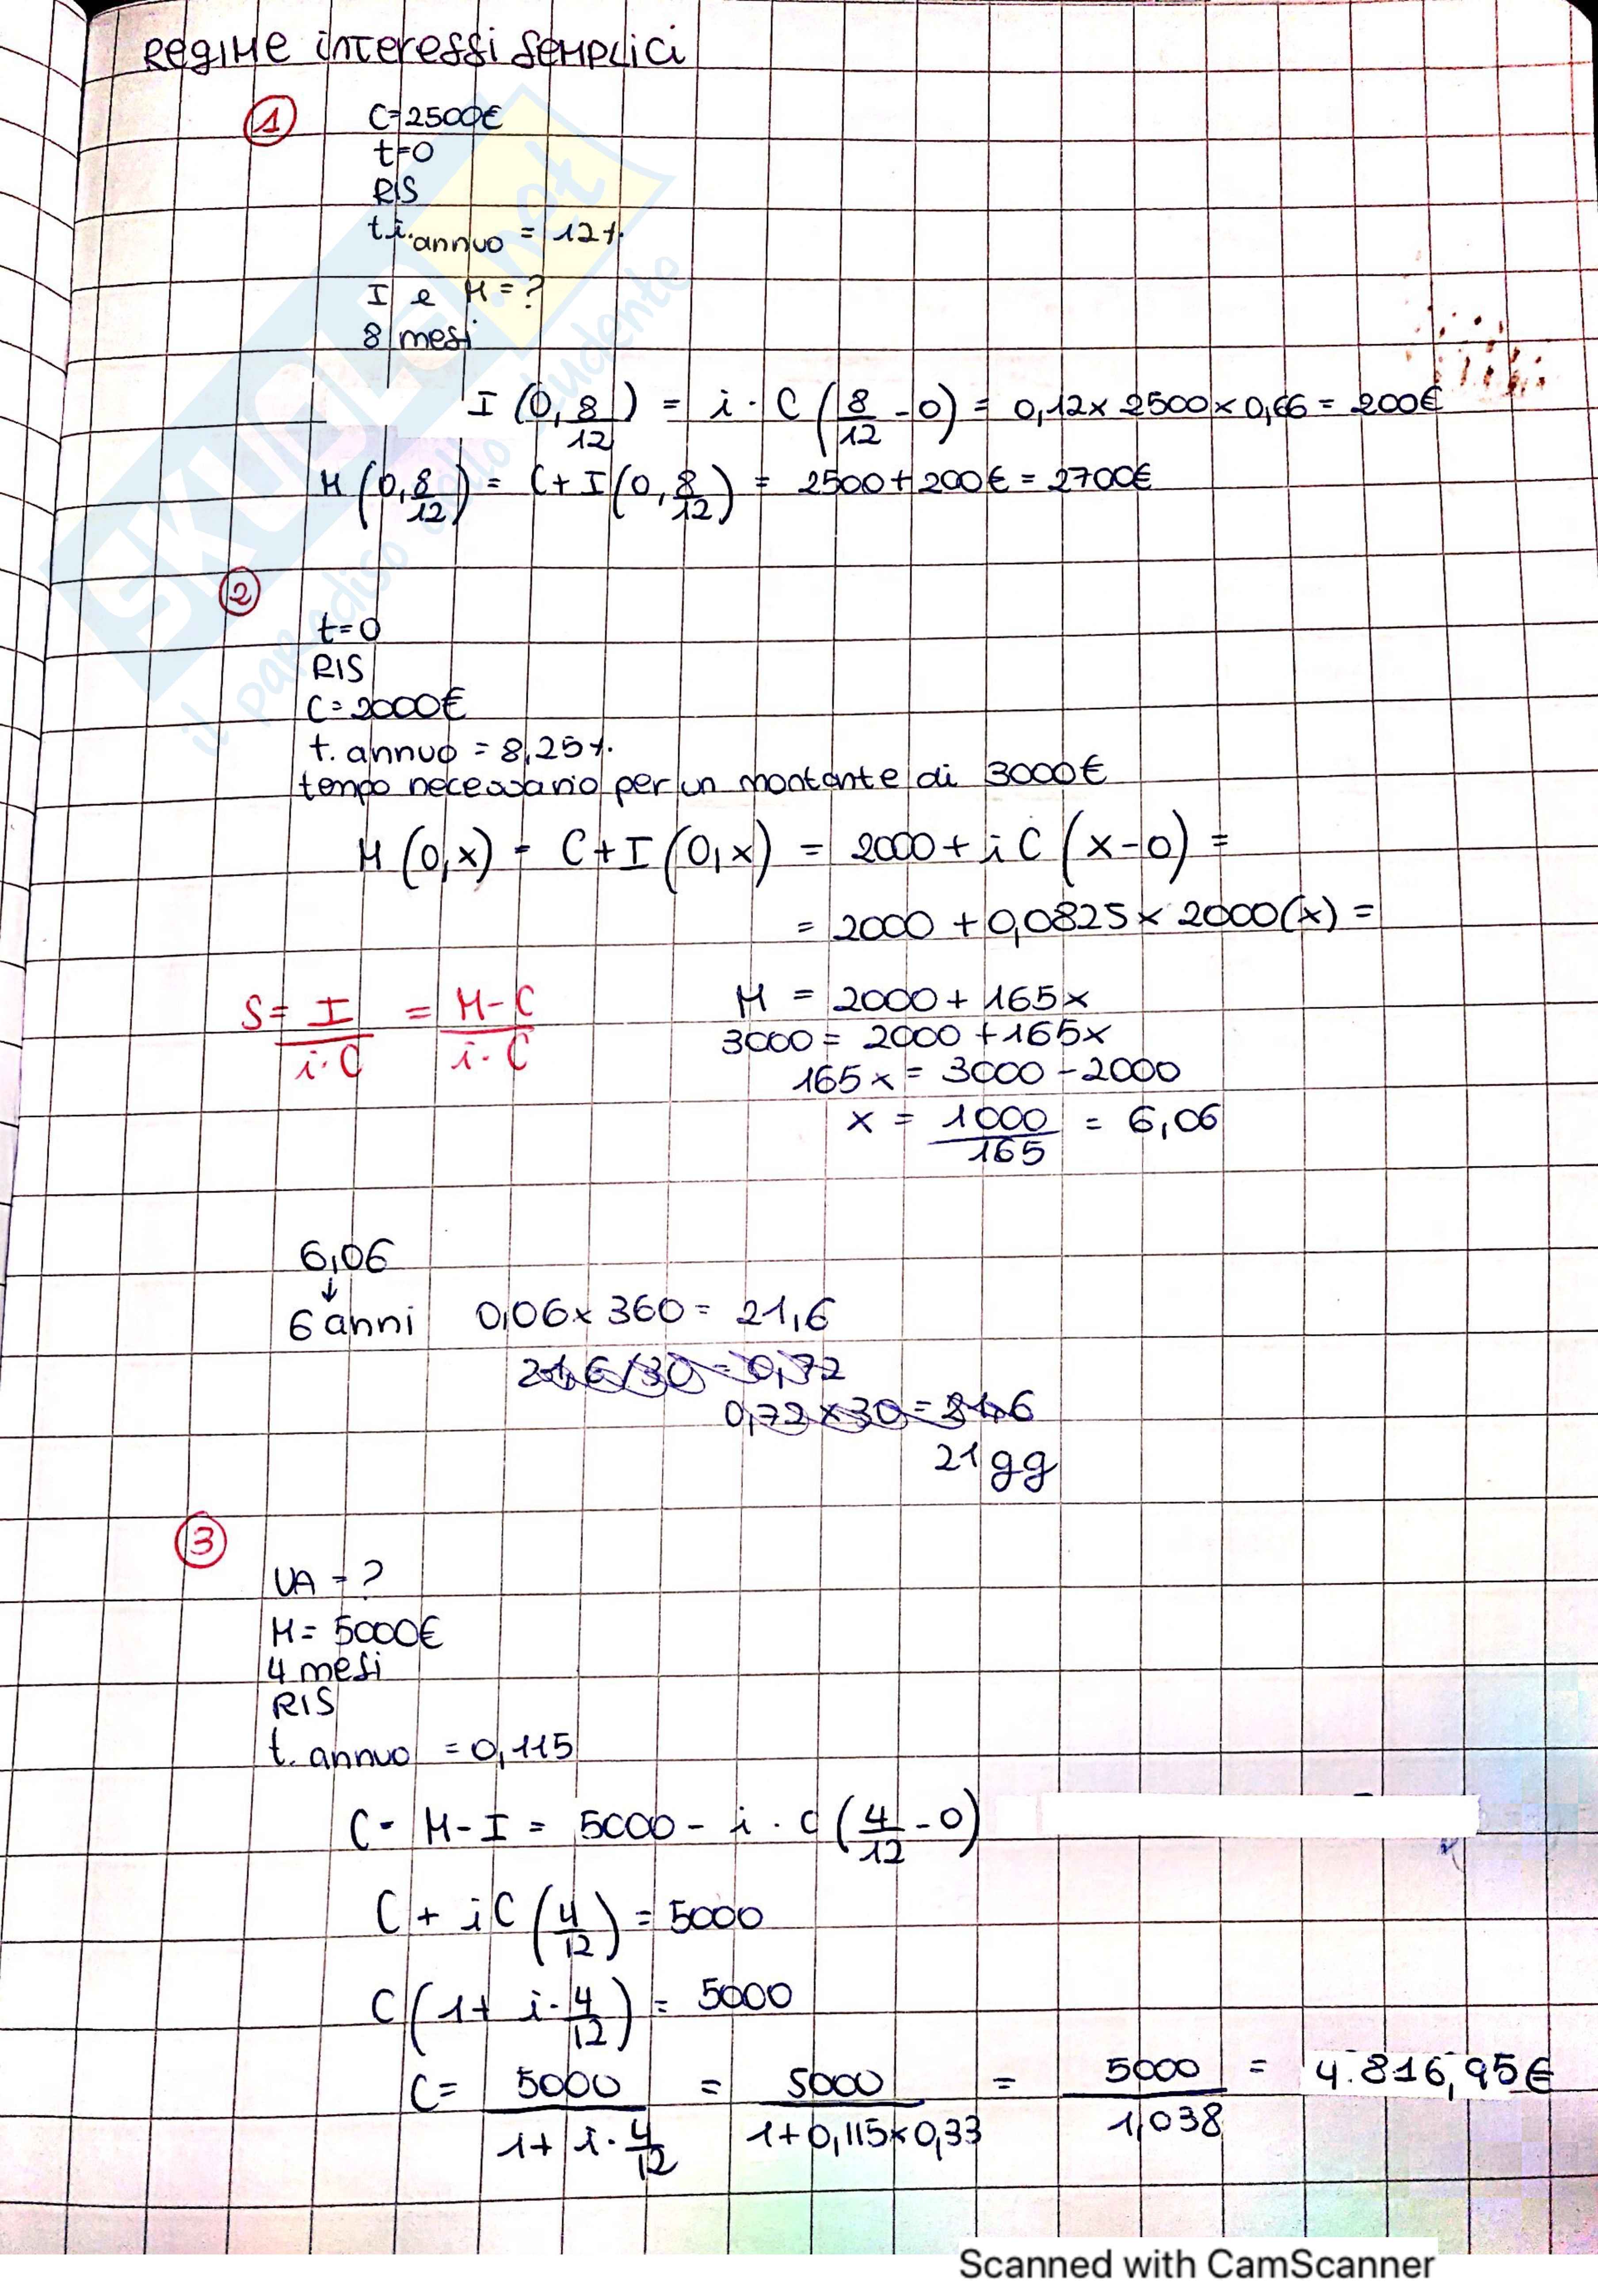 Regime interessi semplici
1
C=2500€
t=0
RIS
t.i. annuo = 12%
I e M = ?
8 mesi
I (0, 8/12) = i · C (8/12 - 0) = 0,12 x 2500 x 0,66 = 200€
M (0, 8/12) = C + I (0, 8/12) = 2500 + 200€ = 2700€
2
t=0
RIS
C= 2000€
t. annuo = 8,25%
tempo necessario per un montante di 3000€
M (0,x) = C + I (0,x) = 2000 + i C (x-0) =
= 2000 + 0,0825 x 2000(x) =
S = I / i·C = M-C / i·C
M = 2000 + 165x
3000 = 2000 + 165x
165x = 3000 - 2000
x = 1000/165 = 6,06
6,06
↓
6 anni 0,06 x 360 = 21,6
21,6/30 = 0,72
0,72 x 30 = 21,6
21 gg
3
VA = ?
M = 5000€
4 mesi
RIS
t. annuo = 0,115
C = M - I = 5000 - i · C (4/12 - 0)
C + i C (4/12) = 5000
C (1 + i · 4/12) = 5000
C = 5000 / 1 + i · 4/12 = 5000 / 1+0,115x0,33 = 5000 / 1,038 = 4.816,95€
SKUOLA.net
il paradiso dello studente
Scanned with CamScanner